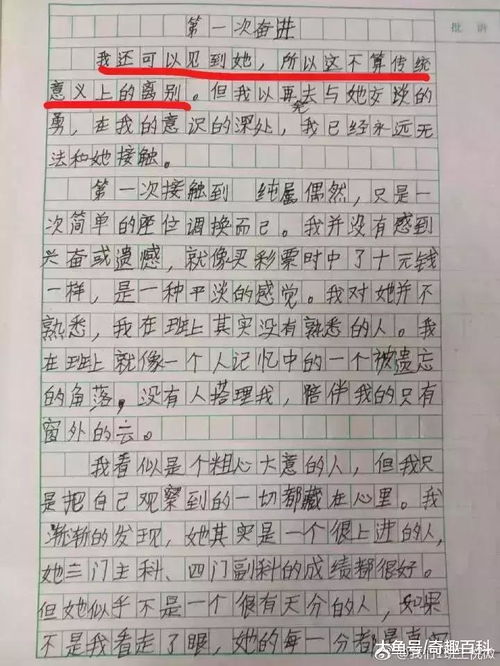 第一次奋进
批讲
我还可以见到她，所以这不算传统
意义上的离别。但我以再去与她交谈的
勇，在我的意识的深处，我已经永远无
法和她接触。
第一次接触到 纯属偶然，只是一
次简单的座位调换而已。我并没有感到
兴奋或遗憾，就像买彩票时中了十元钱
一样，是一种平淡的感觉。我对她并不
熟悉，我在班上其实没有熟悉的人。我
在班上就像一个人记忆中的一个被遗忘
的角落，没有人搭理我，陪伴我的只有
窗外的云。
我看似是个粗心大意的人，但我只
是把自己观察到的一切都藏在心里。我
渐渐的发现，她其实是一个很上进的人，
她三门主科、四门副科的成绩都很好。
但她似乎不是一个很有天分的人，如果
不是我看走了眼，她的每一分都是
大鱼号/奇趣百科